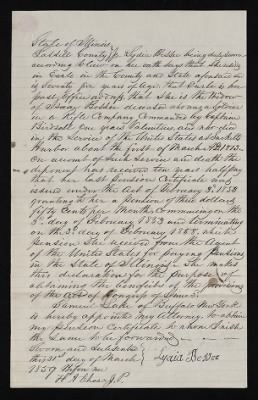 State of Illinois
LaSalle County } ss Lydia Bosloe being duly sworn
according to law on her oath says that she resides
in Earle in the County and State aforesaid that
is Seventy five years of age that Earle is her
post office and that she is the Widow
of deceased who was a Soldier
in a Rifle Company Commanded by Captain
Birdsall One year Volunteers and who died
in the Service of the United States at Sacketts
Harbor about the first of March AD 1813
On account of such service and death the
deponent has received ten years half pay
that her last pension Certificate was
issued under the act of February 3d 1853
granting to her a pension of three dollars
fifty cents per month commencing on the
3d day of February 1853 and terminating
on the 3d day of February 1858, which
pension she received from the Agent
of the United States for paying pensions
in the State of Illinois. She makes
this declaration for the purpose of
obtaining the benefits of the provisions
of the act of Congress of June 3d
Samuel Lake of Buffalo New York
is hereby appointed my Attorney to obtain
my pension Certificate to whom I wish
the same to be forwarded
Sworn and Subscribed
this 31st day of March } Lydia Bosloe
1859 Before me
J.P.